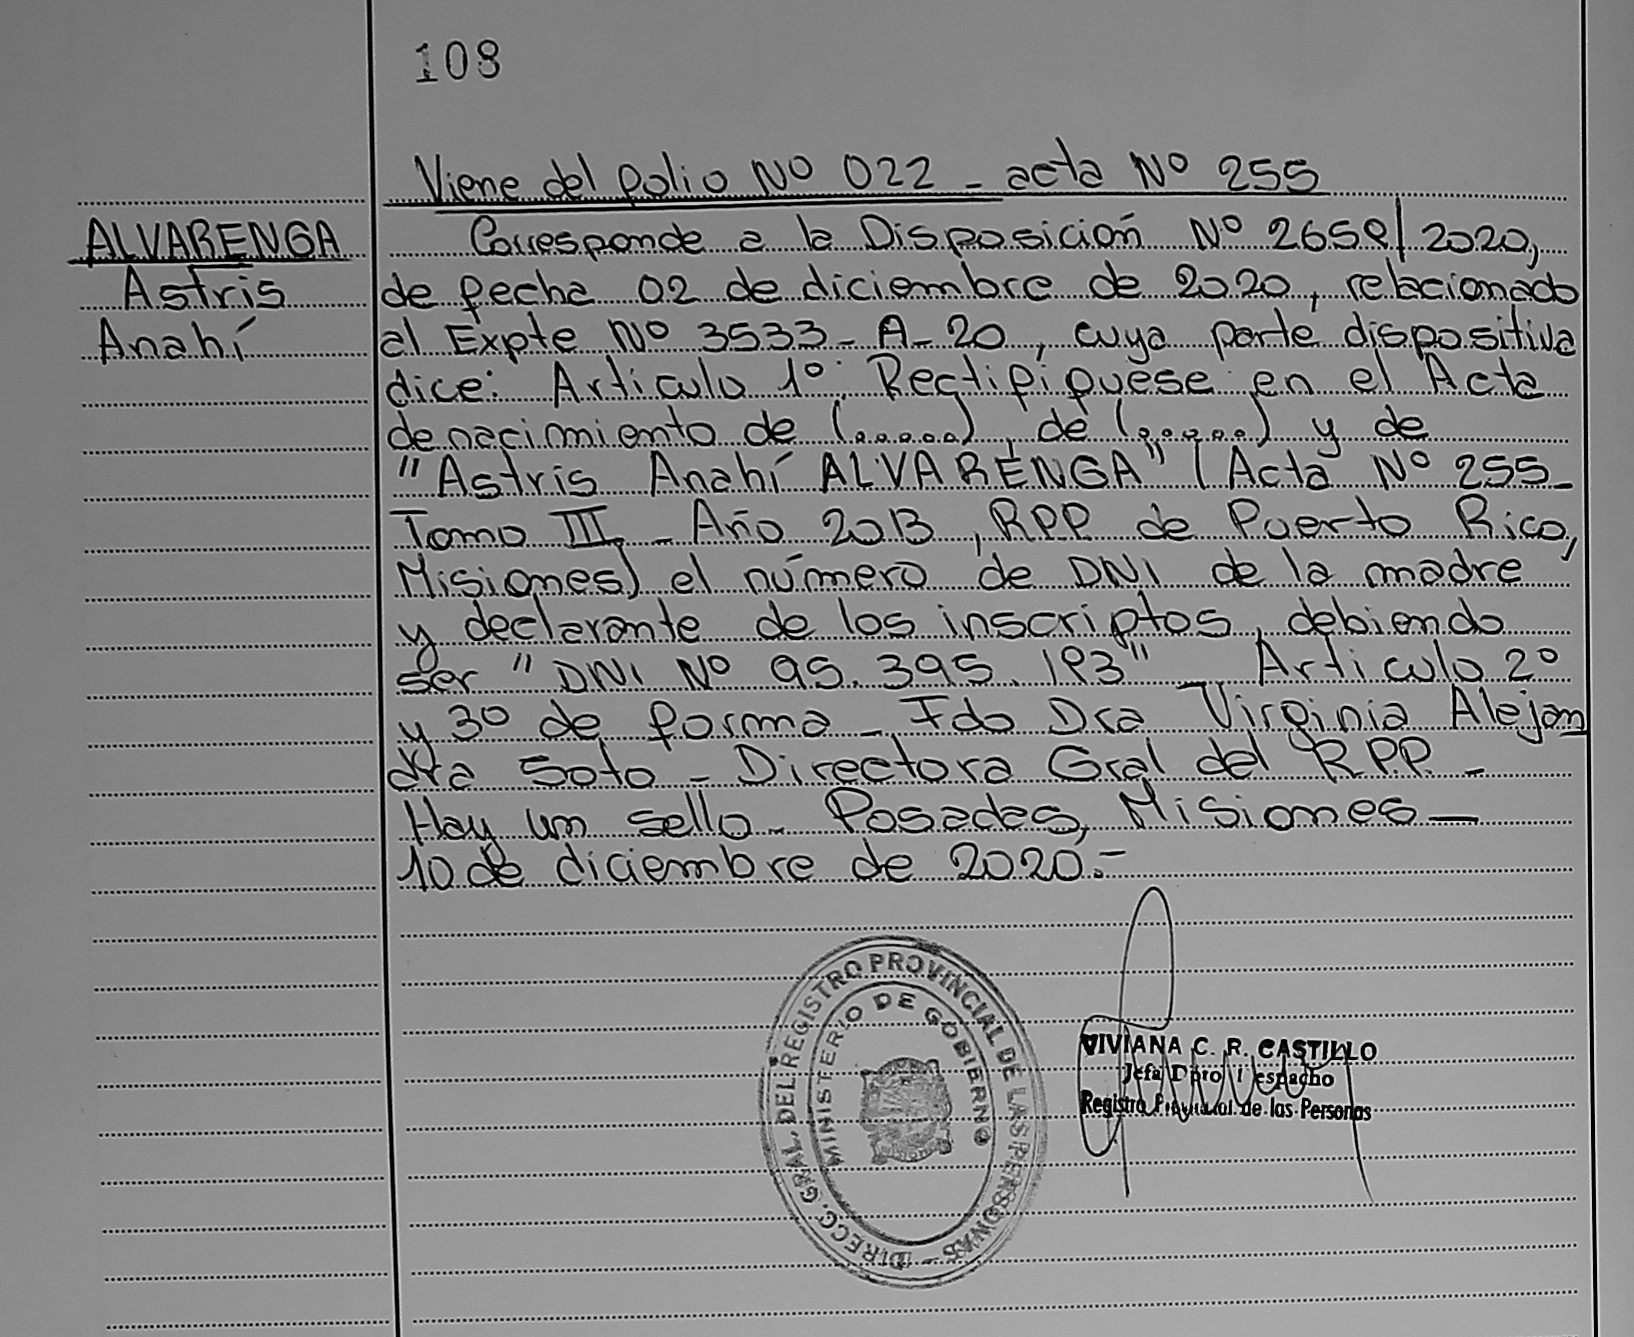 108
Viene del folio Nº 022 - acta Nº 255
ALVARENGA
Astris
Anahí
Corresponde a la Disposición Nº 2659/2020,
de fecha 02 de diciembre de 2020, relacionado
al Expte Nº 3533-A-20, cuya parte dispositiva
dice: Articulo 1º: Rectifiquese en el Acta
de nacimiento de (......), de (......) y de
"Astris Anahí ALVARENGA" (Acta Nº 255-
Tomo III - Año 2013, RPP. de Puerto Rico,
Misiones) el número de DNI de la madre
y declarante de los inscriptos, debiendo
ser "DNI Nº 95.395.193" - Articulo 2º
y 3º de forma - Fdo Dra Virginia Alejan
dra Soto - Directora Gral del R.P.P. -
Hay un sello - Posadas, Misiones -
10 de diciembre de 2020.-
DIRECC. GRAL. DEL REGISTRO PROVINCIAL DE LAS PERSONAS -
MINISTERIO DE GOBIERNO
VIVIANA C. R. CASTILLO
Jefa Dpto Despacho
Registro Provincial de las Personas